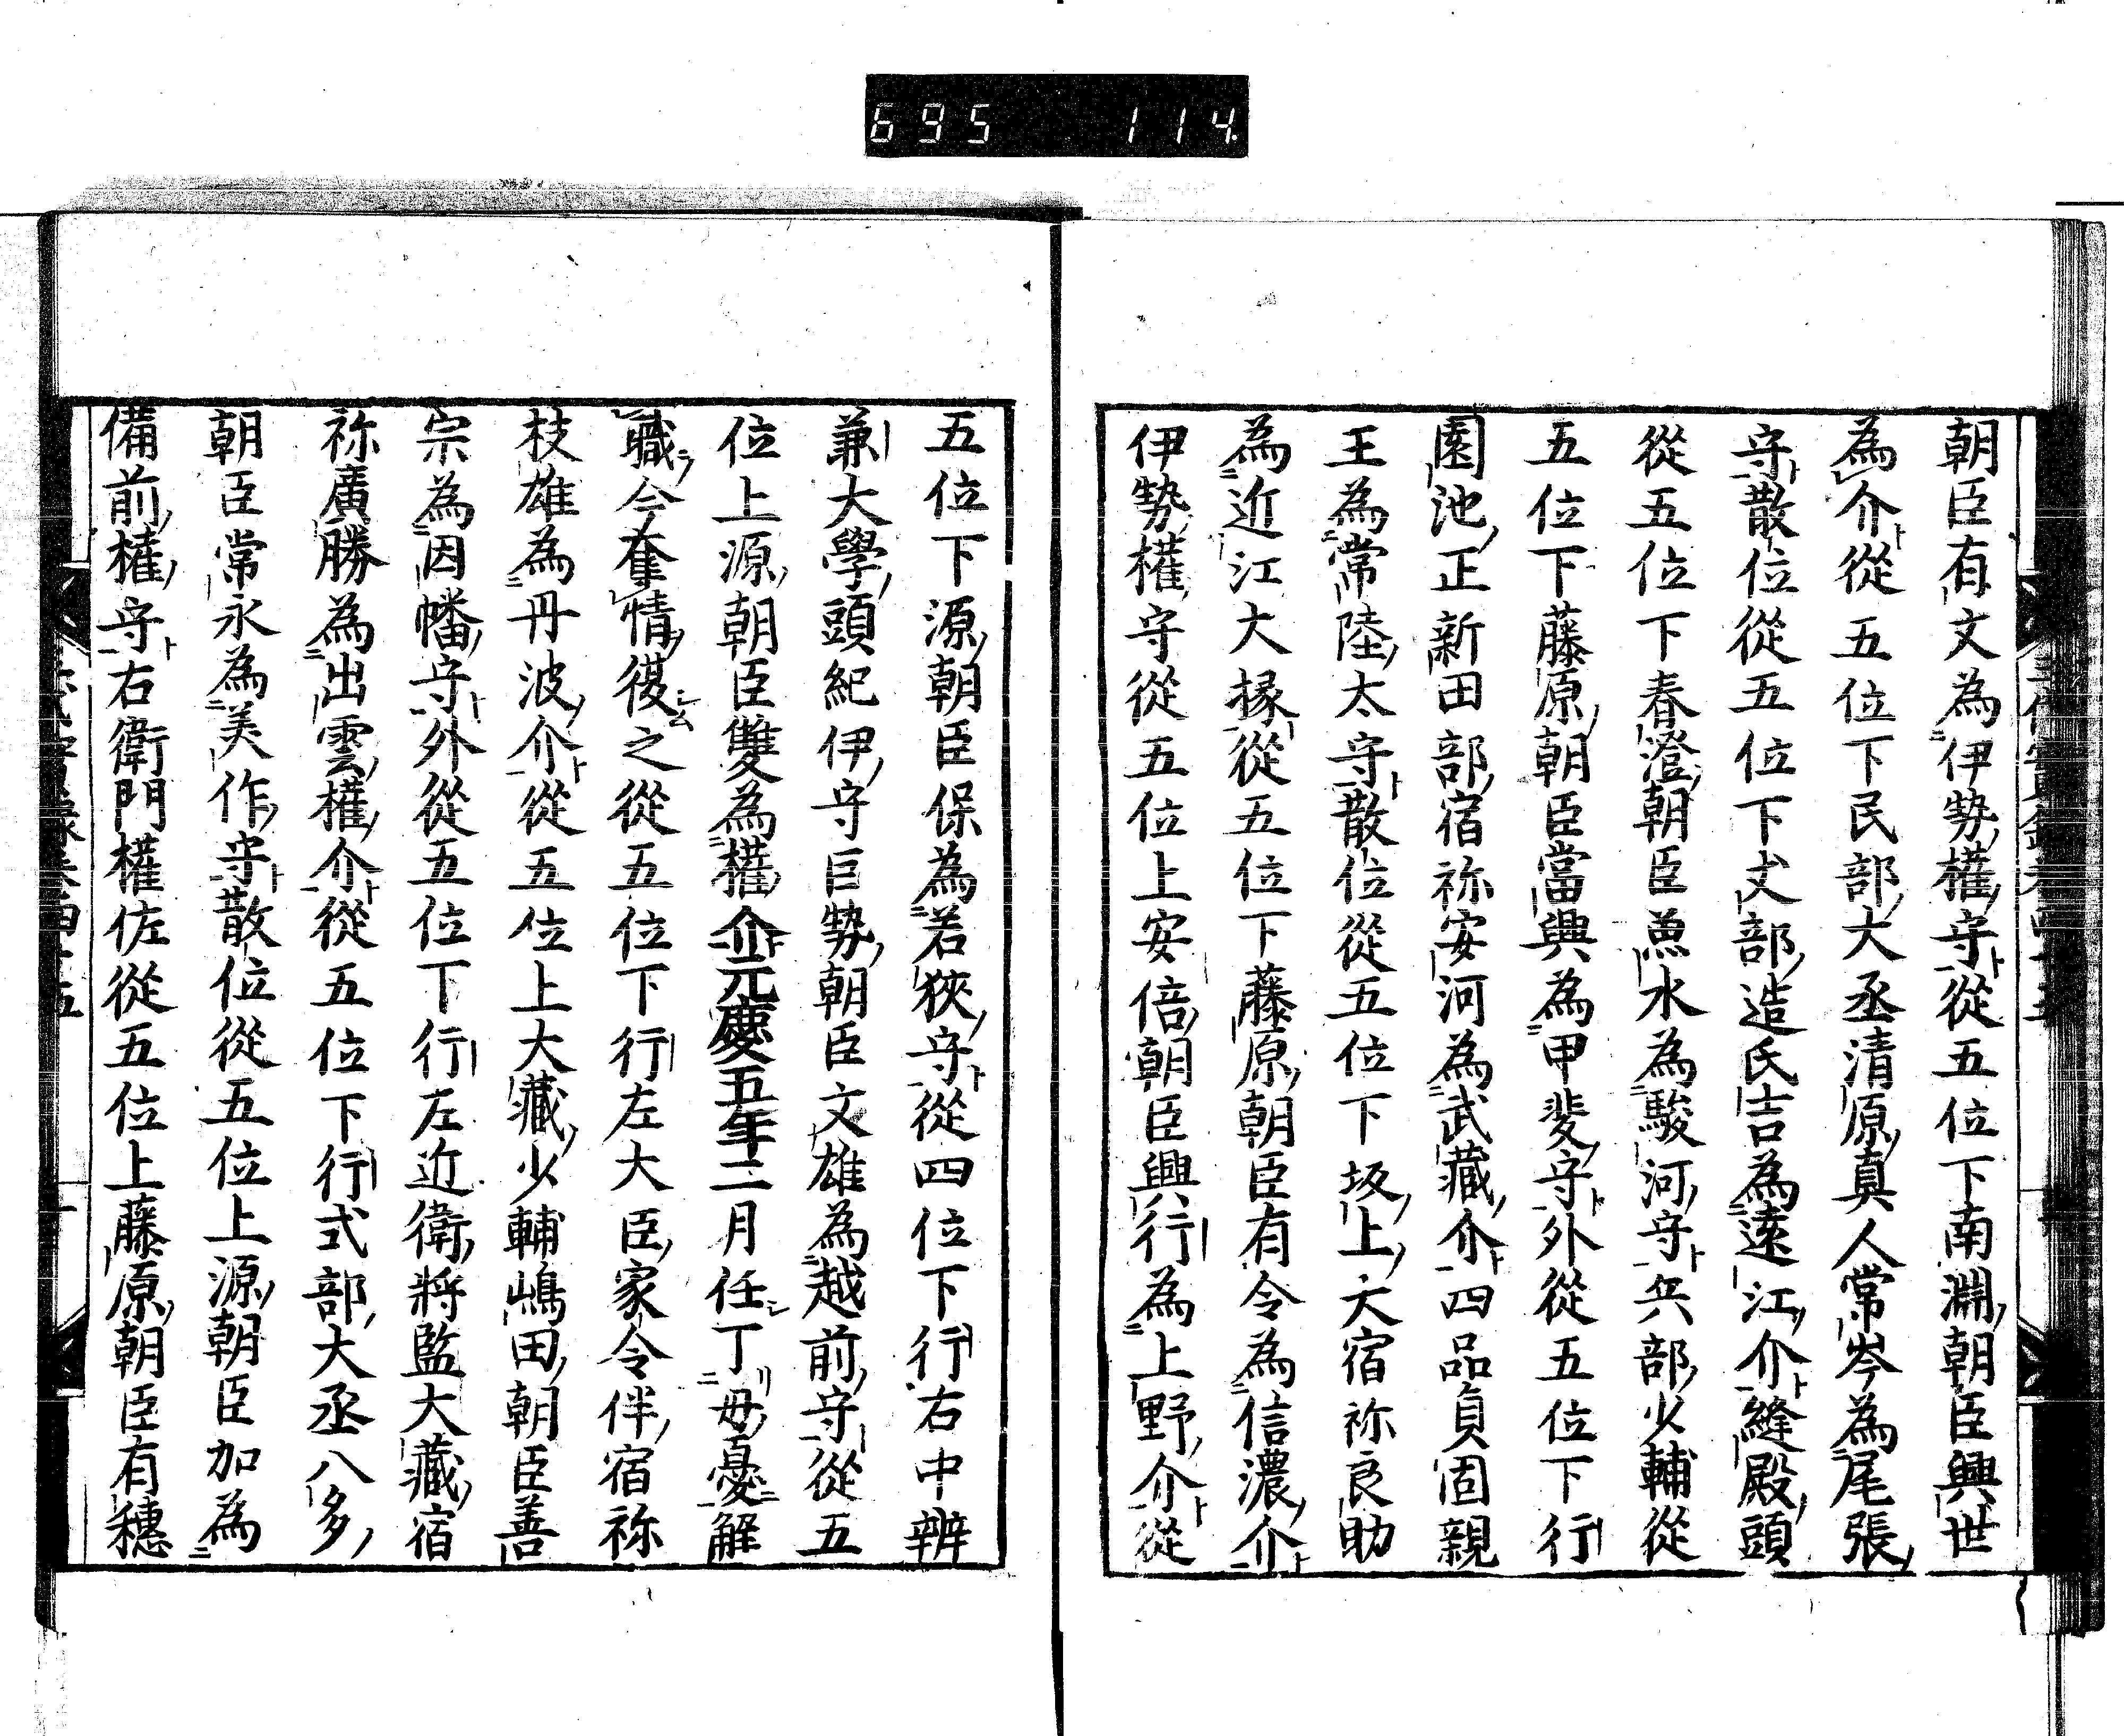 695 114
朝臣有文為伊勢權守從五位下南淵朝臣興世
為介從五位下民部大丞清原真人常岑為尾張
守散位從五位下丈部造氏吉為遠江介縫殿頭
從五位下春澄朝臣魚水為駿河守兵部少輔從
五位下藤原朝臣當興為甲斐守外從五位下行
園池正新田部宿祢安河為武藏介四品貞固親
王為常陸太守散位從五位下坂上大宿祢良助
為近江大掾從五位下藤原朝臣有令為信濃介
伊勢權守從五位上安倍朝臣興行為上野介從
五位下源朝臣保為若狹守從四位下行右中辨
兼大學頭紀伊守巨勢朝臣文雄為越前守從五
位上源朝臣雙為權介元慶五年二月任丁母憂解
職今奪情復之從五位下行左大臣家令伴宿祢
枝雄為丹波介從五位上大藏少輔嶋田朝臣善
宗為因幡守外從五位下行左近衛將監大藏宿
祢廣勝為出雲權介從五位下行式部大丞八多
朝臣常永為美作守散位從五位上源朝臣加為
備前權守右衛門權佐從五位上藤原朝臣有穗